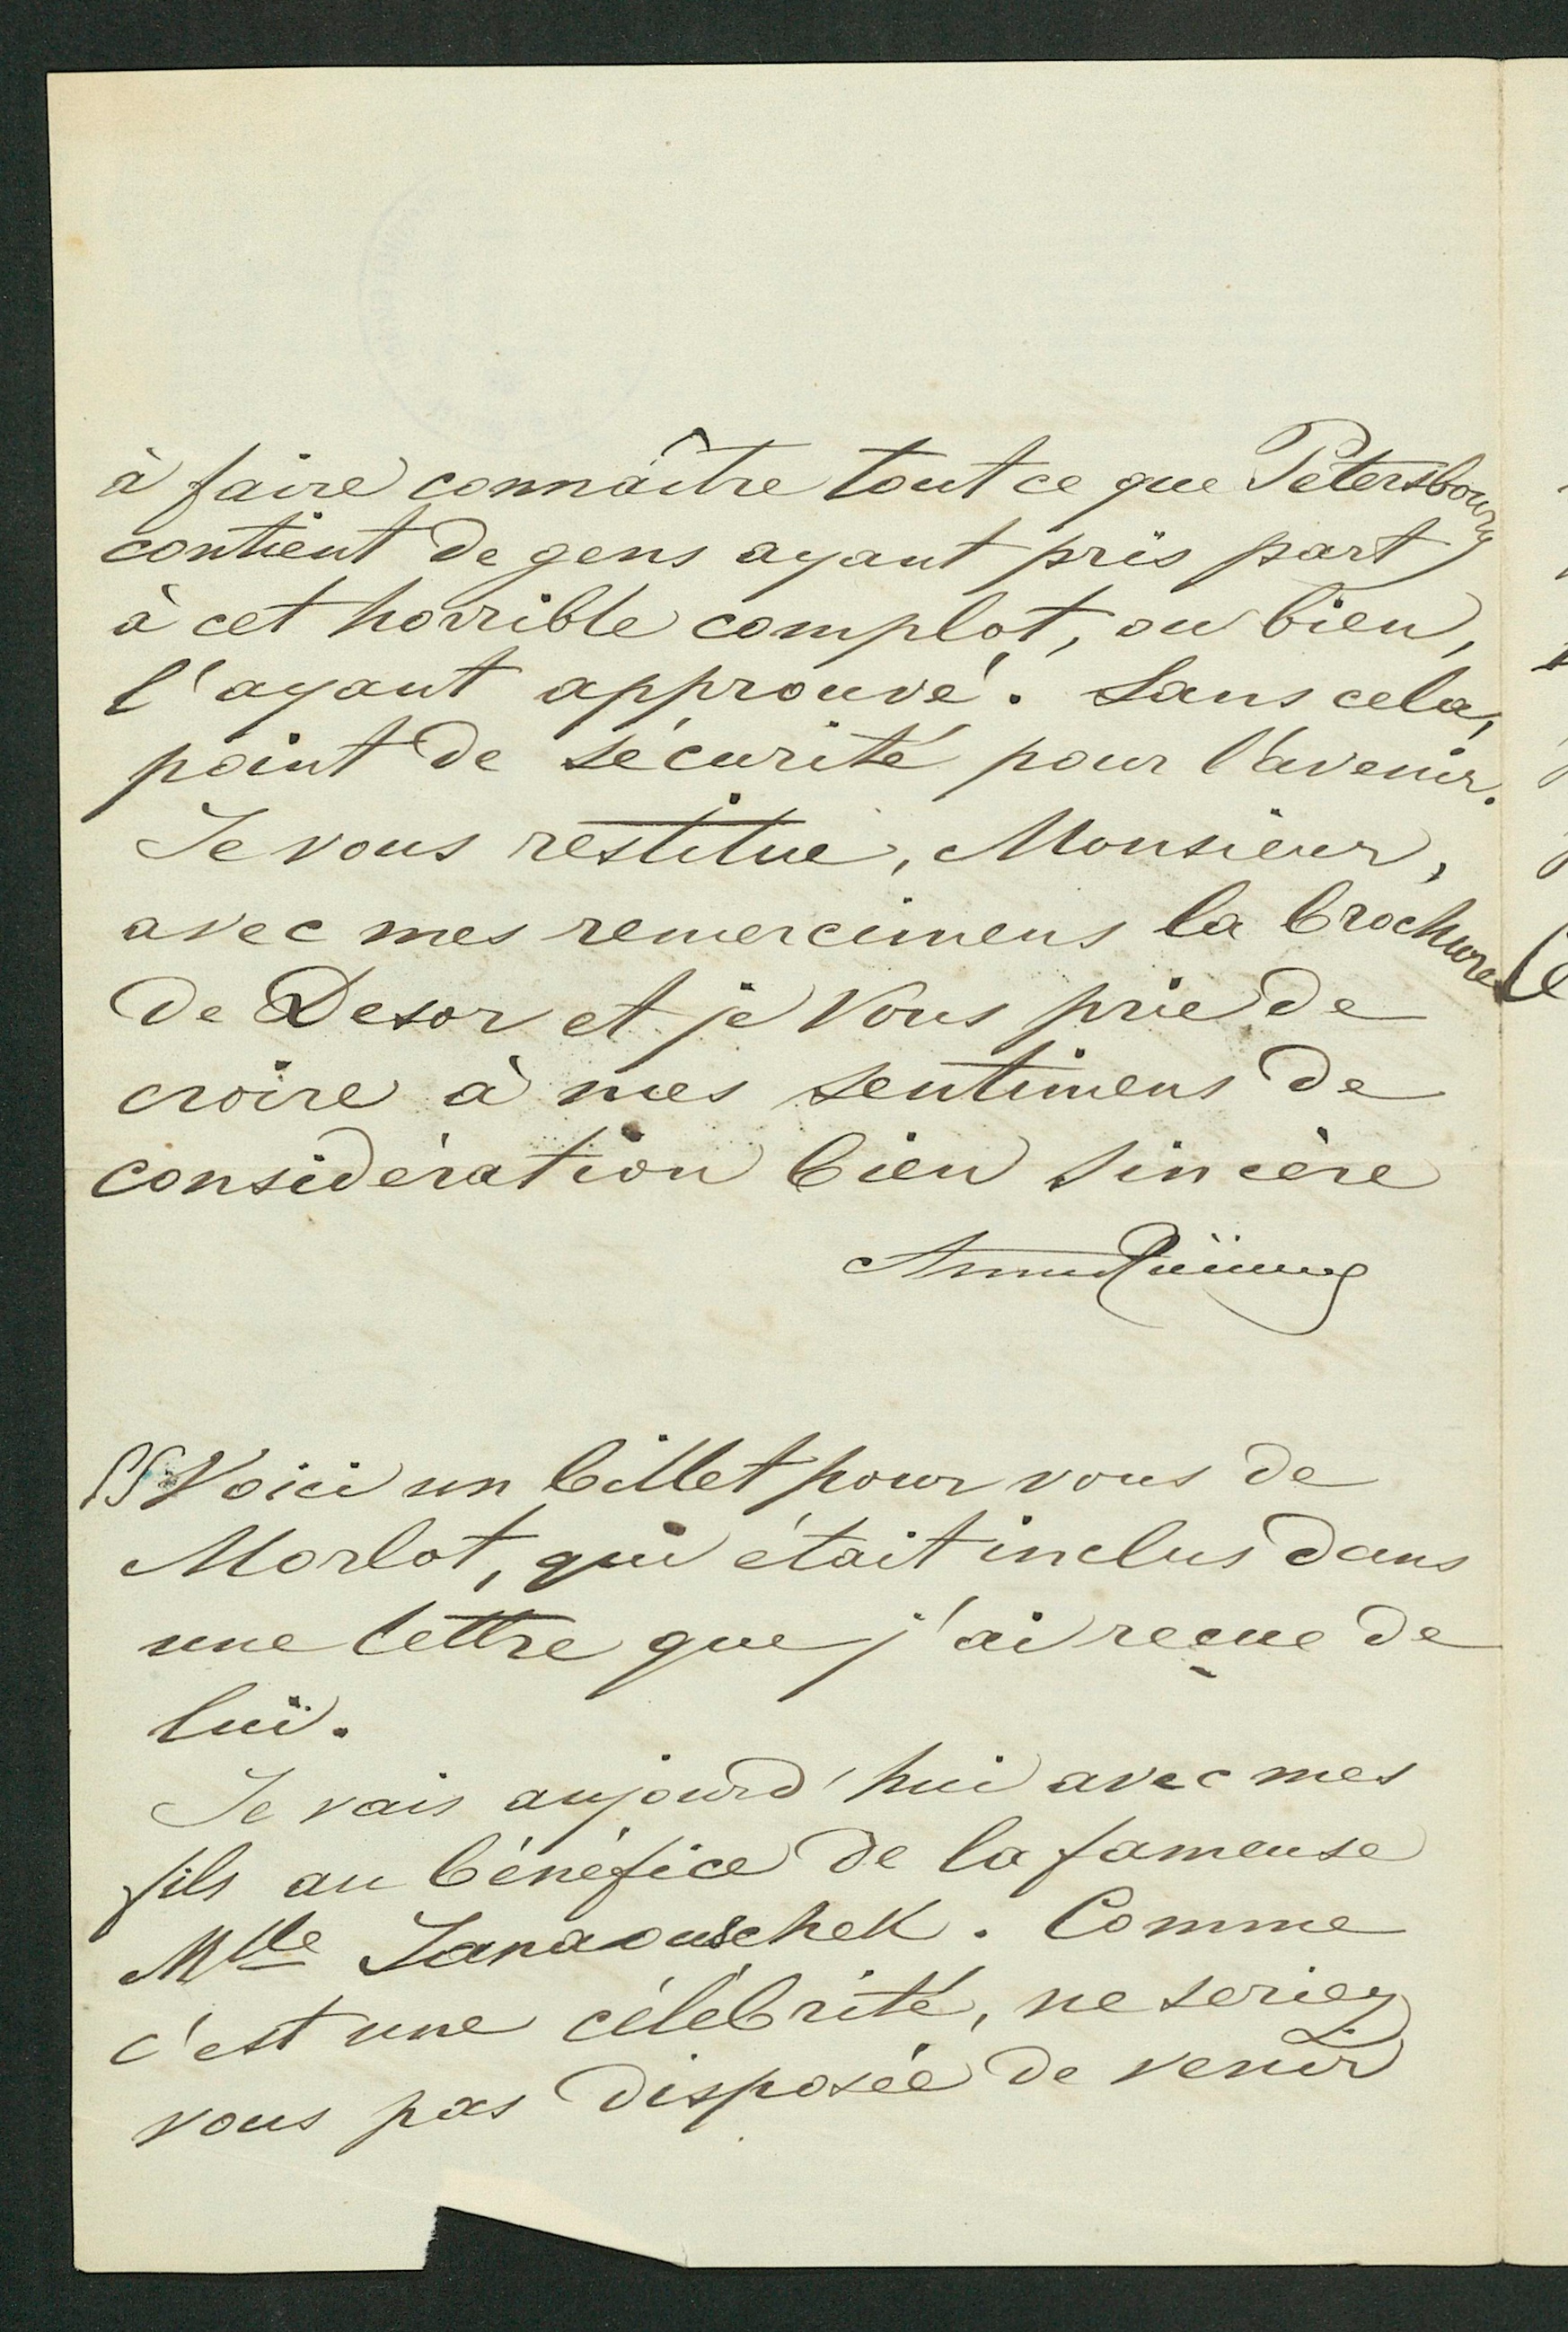 à faire connaître tout ce que Petersbourg
contient de gens ayant pris part
à cet horrible complot, ou bien,
l'ayant approuvé. Sans cela,
point de sécurité pour l'avenir.
Je vous restitue, Monsieur,
avec mes remercimens la brochure
de Desor et je Vous prie de
croire à mes sentimens de
considération bien sincère
PS Voici un billet pour vous de
Morlot, qui était inclus dans
une lettre que j'ai reçue de
lui.
Je vais aujourd'hui avec mes
fils au bénéfice de la fameuse
Mlle Janaouschek. Comme
c'est une célébrité, ne seriez
vous pas disposée de venir